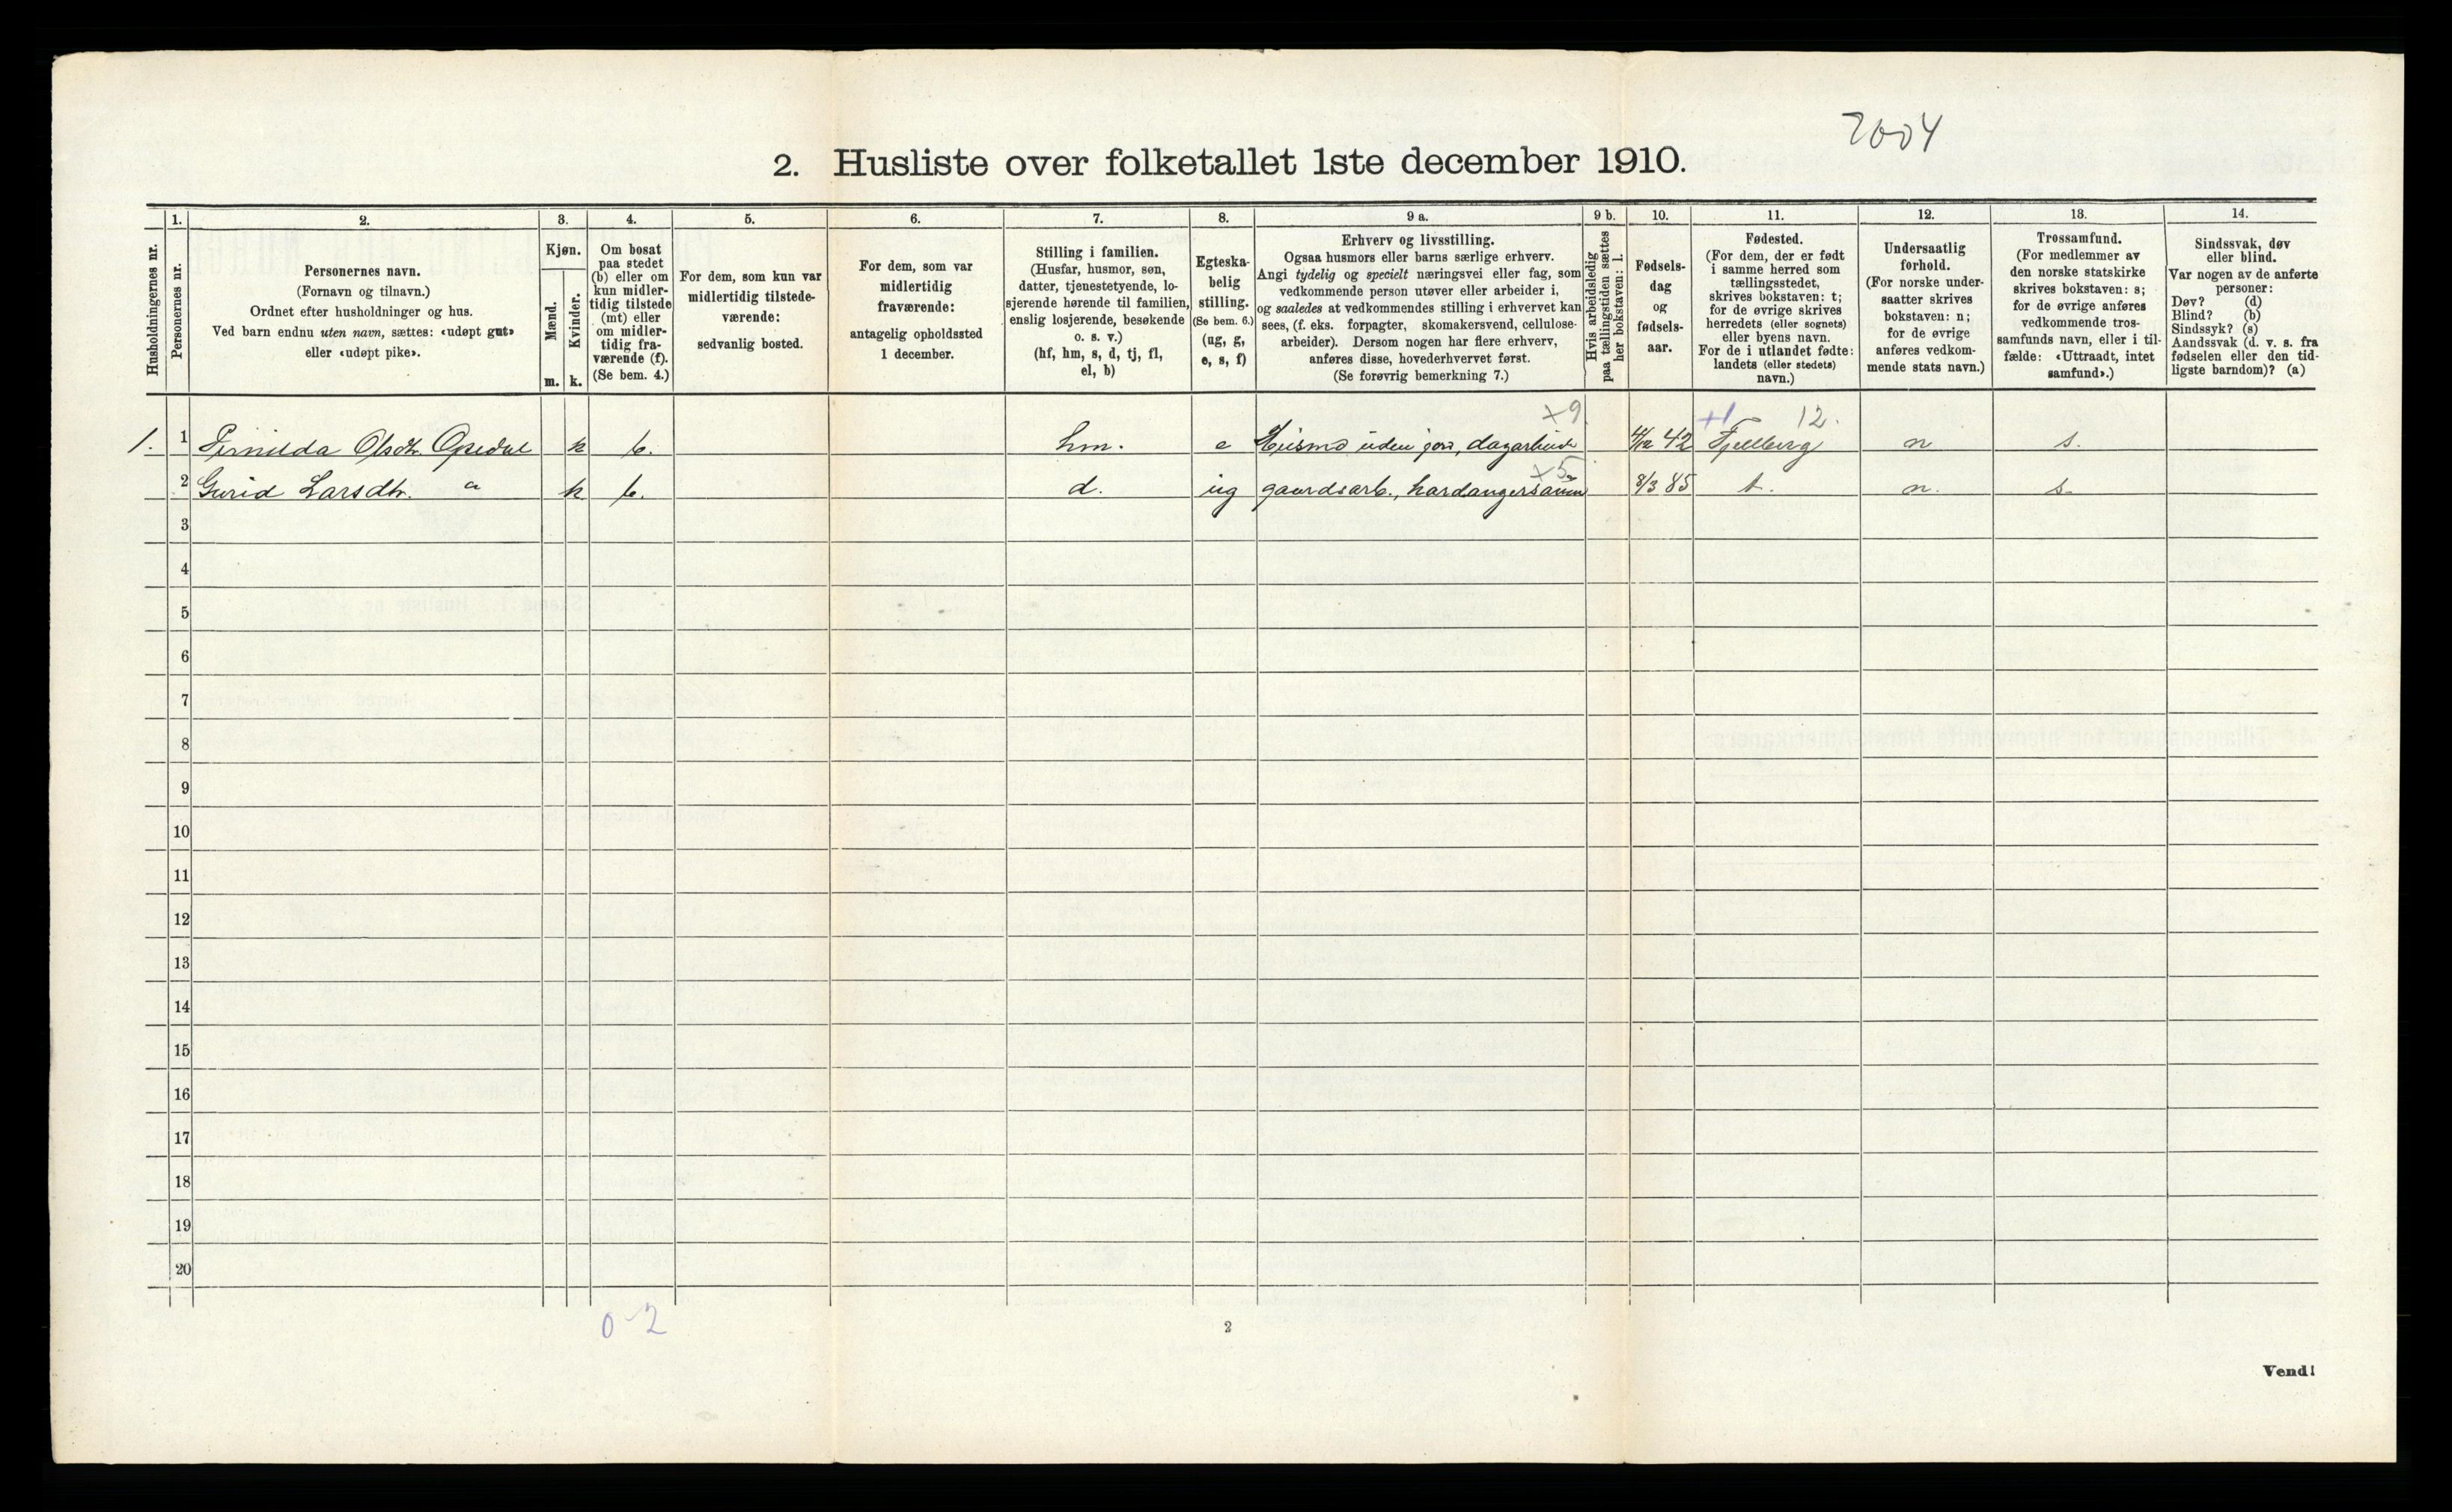 2004
2. Husliste over folketallet 1ste december 1910.
Husholdningernes nr.
1.
Personernes nr.
2.
Personernes navn.
(Fornavn og tilnavn.)
Ordnet efter husholdninger og hus.
Ved barn endnu uten navn, sættes: «udøpt gut»
eller «udøpt pike».
3.
Kjøn.
Mænd.
Kvinder.
m. k.
4.
Om bosat
paa stedet
(b) eller om
kun midler-
tidig tilstede
(mt) eller
om midler-
tidig fra-
værende (f).
(Se bem. 4.)
5.
For dem, som kun var
midlertidig tilstede-
værende:
sedvanlig bosted.
6.
For dem, som var
midlertidig
fraværende:
antagelig opholdssted
1 december.
7.
Stilling i familien.
(Husfar, husmor, søn,
datter, tjenestetyende, lo-
sjerende hørende til familien,
enslig losjerende, besøkende
o. s. v.)
(hf, hm, s, d, tj, fl,
el, b)
8.
Egteska-
belig
stilling.
(Se bem. 6.)
(ug, g,
e, s, f)
9 a.
Erhverv og livsstilling.
Ogsaa husmors eller barns særlige erhverv.
Angi tydelig og specielt næringsvei eller fag, som
vedkommende person utøver eller arbeider i,
og saaledes at vedkommendes stilling i erhvervet kan
sees, (f. eks. forpagter, skomakersvend, cellulose-
arbeider). Dersom nogen har flere erhverv,
anføres disse, hovederhvervet først.
(Se forøvrig bemerkning 7.)
9 b.
Hvis arbeidsledig
paa tællingstiden sættes
her bokstaven: l.
10.
Fødsels-
dag
og
fødsels-
aar.
11.
Fødested.
(For dem, der er født
i samme herred som
tællingsstedet,
skrives bokstaven: t;
for de øvrige skrives
herredets (eller sognets)
eller byens navn.
For de i utlandet fødte:
landets (eller stedets)
navn.)
12.
Undersaatlig
forhold.
(For norske under-
saatter skrives
bokstaven: n;
for de øvrige
anføres vedkom-
mende stats navn.)
13.
Trossamfund.
(For medlemmer av
den norske statskirke
skrives bokstaven: s;
for de øvrige anføres
vedkommende tros-
samfunds navn, eller i til-
fælde: «Uttraadt, intet
samfund».)
14.
Sindssvak, døv
eller blind.
Var nogen av de anførte
personer:
Døv? (d)
Blind? (b)
Sindssyk? (s)
Aandssvak (d. v. s. fra
fødselen eller den tid-
ligste barndom)? (a)
x9 +1 12.
1. 1 Pernilda Olsdtr. Opedal k b. hm. e Husmd uden jord, dagarbeid 4/12 42 Fjelberg n s.
x5
2 Gurid Larsdtr. " k b. d. ug gaardsarb., hardangersaum 8/3 85 t. n. s.
3
4
5
6
7
8
9
10
11
12
13
14
15
16
17
18
19
20
0-2
2
Vend!